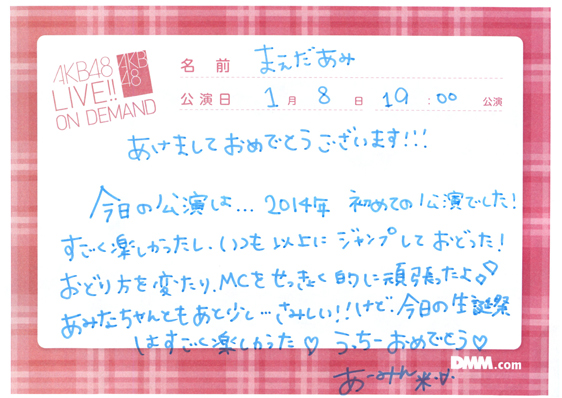 AKB48
LIVE!!
ON DEMAND
AKB
48
名前 まえだあみ
公演日 1月8日 19:00 公演
あけましておめでとうございます!!!
今日の公演は... 2014年 初めての公演でした!
すごく楽しかったし、いつも以上にジャンプしておどった!
おどり方を変たり、MCをせっきょく的に頑張ったよ♡♡
あみなちゃんともあと少し...さみしい!!けど、今日の生誕祭
はすごく楽しかった♡ うっちーおめでとう♡
DMM.com
あーみん